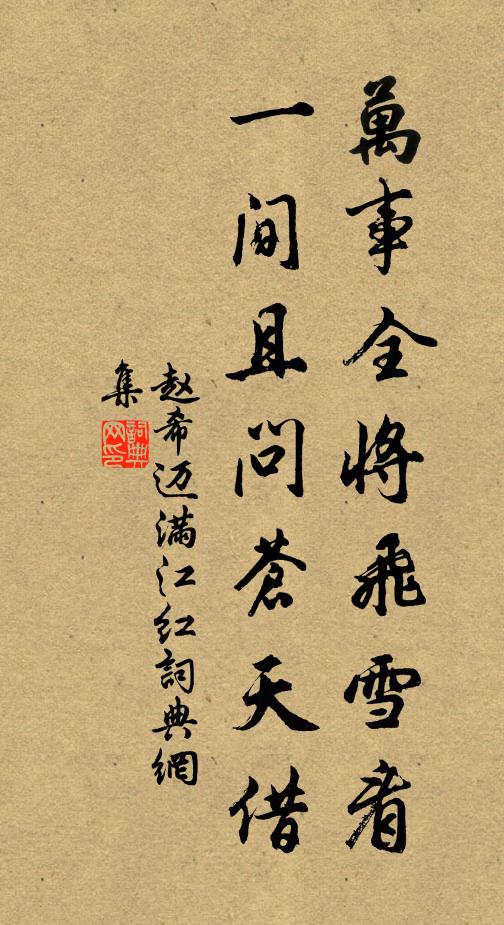 萬事全將飛雪看
一间且问蒼天借
赵希迈满江红詞典網
集
詞典
网印